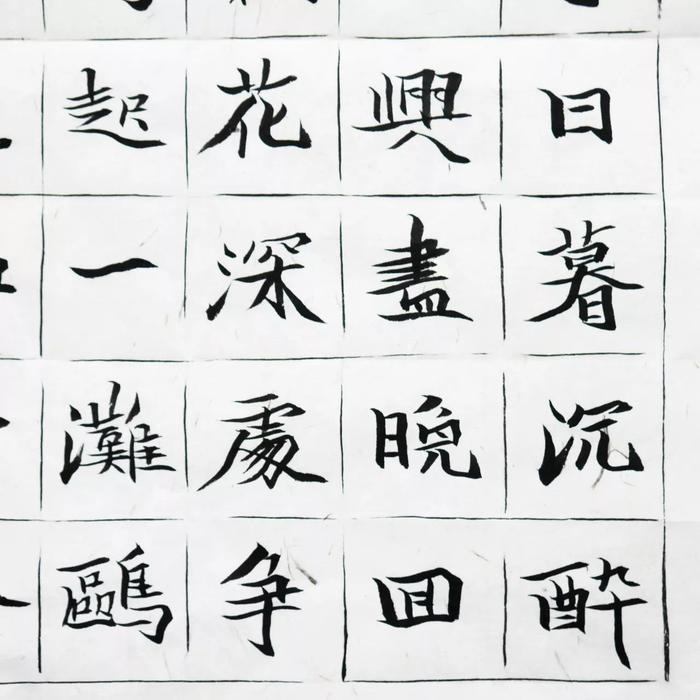 日暮沉酔
興盡晚囬
花深處争
起一灘鷗